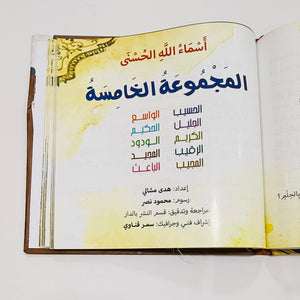 أَسْمَاءُ اللَّهِ الحُسْنَى
المَجْمُوعَةُ الخَامِسَةُ
الحسيب الواسع
الجليل الحكيم
الكريم الودود
الرقيب المجيد
المجيب الباعث
إعداد: هدى مشالي
رسوم: محمود نصر
مراجعة وتدقيق: قسم النشر بالدار
إشراف فني وجرافيك: سمر قناوي